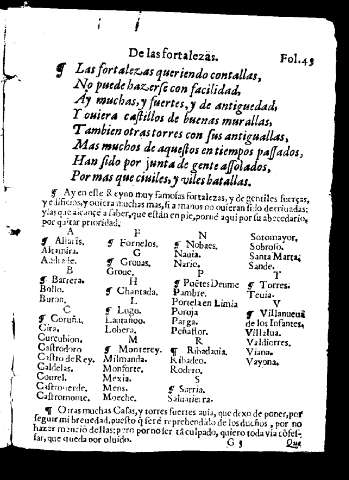 De las fortalezas. Fol. 45
¶ Las fortalezas queriendo contallas,
No puede hazerse con facilidad,
Ay muchas, y fuertes, y de antiguedad,
Y ouiera castillos de buenas murallas,
Tambien otras torres con sus antiguallas,
Mas muchos de aquestos en tiempos passados,
Han sido por junta de gente assolados,
Por mas que ciuiles, y viles batallas.
¶ Ay en este Reyno muy famosas fortalezas, y de gentiles fuerças,
y edificios, y ouiera muchas mas, si a manos no ouieran sido derriuadas;
y las que alcançe a saber, que están en pie, porné aqui por su abecedario,
por quitar prioridad.
A
¶ Altaris.
Altamira.
B
¶ Barrera.
Bollo.
Buron.
C
¶ Coruña.
Cira.
Curcubion.
Castrodoro
Castro de Rey.
Caldelas.
Caurel.
Castroverde.
Castromonte.
F
¶ Fornelos.
G
¶ Grouas.
Groue.
H
¶ Chantada.
L
¶ Lugo.
Lantañoo.
Lobera.
M
¶ Monterey.
Milmanda.
Monforte.
Mexia.
Mens.
Moeche.
N
¶ Nobaes.
Nauia.
Nario.
P
¶ Poētes Deume
Pambre.
Portela en Limia
Poroja
Parga.
Peñaflor.
R
¶ Ribadauia.
Ribadeo.
Rodero.
S
¶ Sarria.
Saluatierra.
Sotomayor.
Sobroso.
Santa Marta.
Sande.
T
¶ Torres.
Teuia.
V
¶ Villanueua
de los Infantes.
Villalua.
Valdierres.
Viana.
Vayona.
¶ Otras muchas Casas, y torres fuertes auia, que dexo de poner, por
seguir mi breuedad, puesto q̃ seré reprehendido de los dueños, por no
hazer menciō dellas: pero por no ser tā culpado, quiero toda via cōfes-
sar, que queda por oluido.
G 5 Que